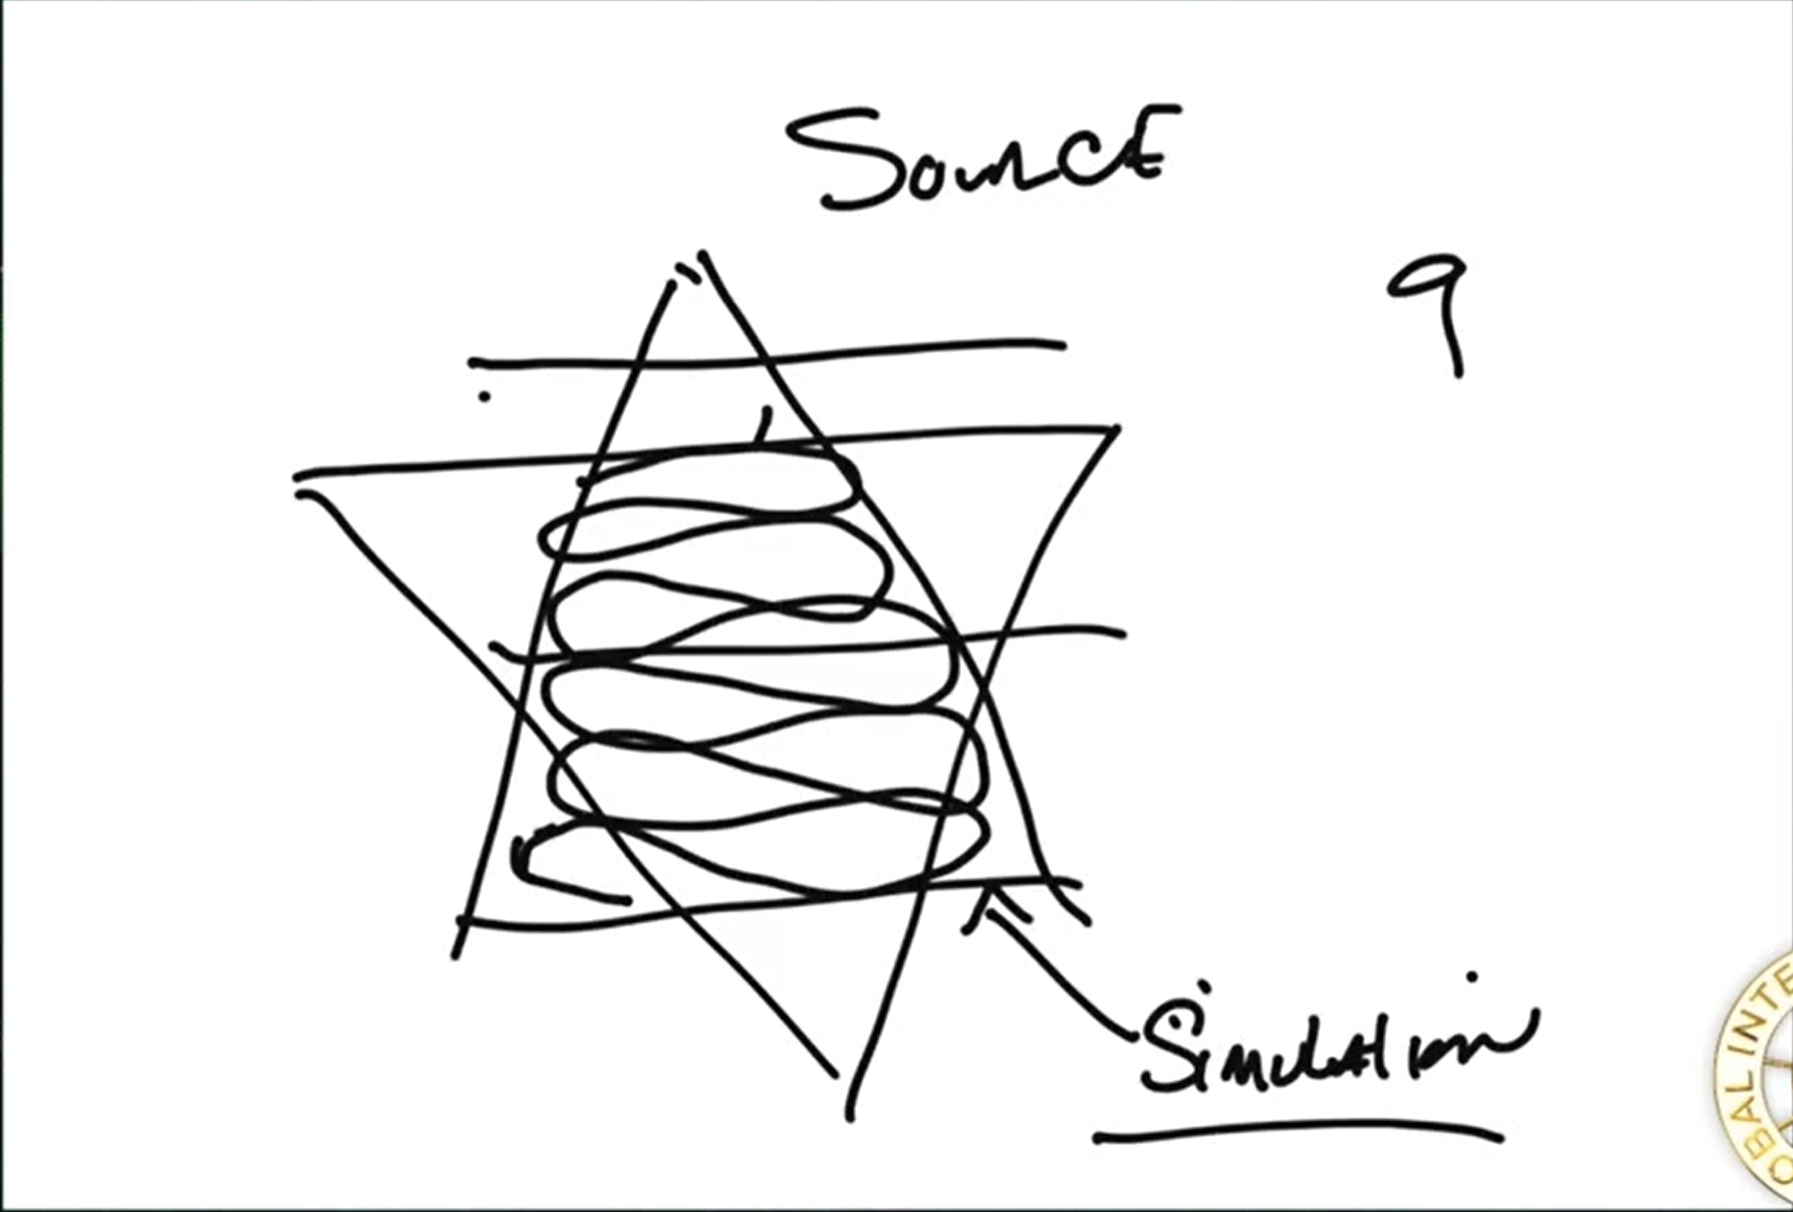 SourcE
9
Simulation
OBAL INTE